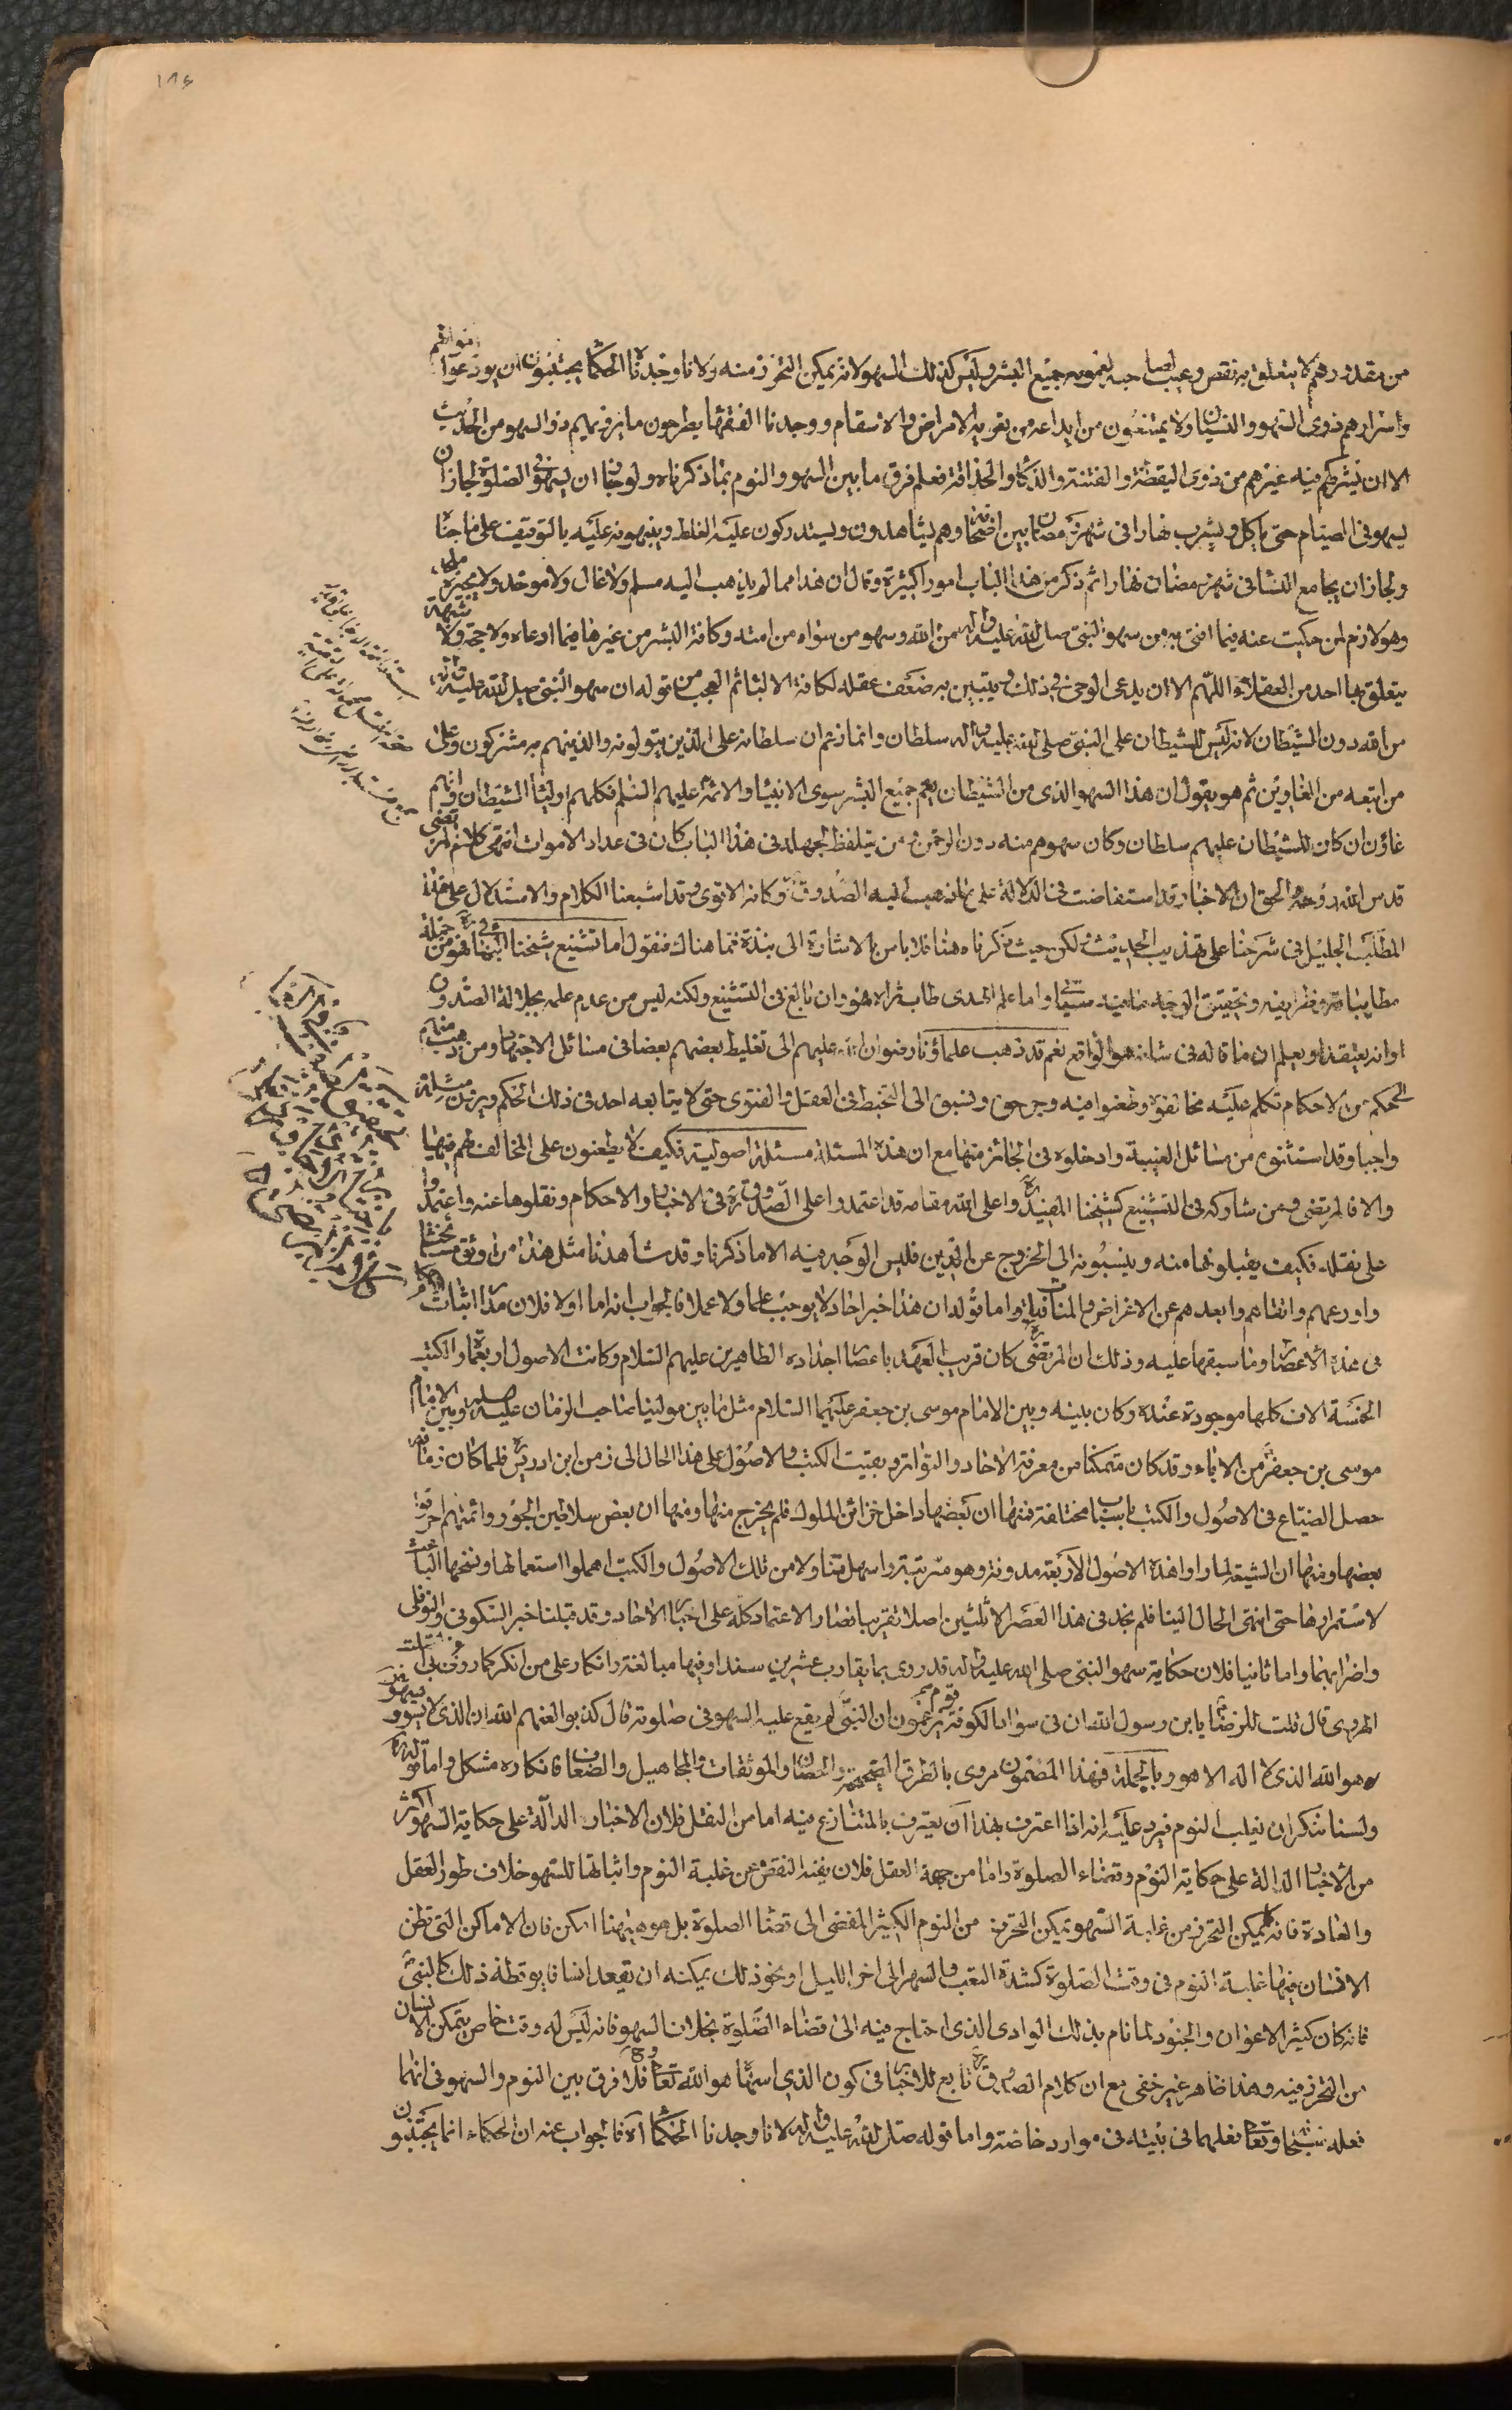 ١٨٤
من مقدورهم لا يتعلق به نقص وعيب لصاحبه لعمومه جميع البشر وليس كذلك السهو لانه يمكن التحرز منه ولانا وجدنا الحكماء يجتنبون ان يودعوا اموالهم
واسرارهم ذوى السهو والنسيان ولا يمتنعون من ايداعه من يعتريه الامراض والاسقام ووجدنا الفقهاء يطرحون ما يرويهم ذو السهو من الحديث
الا ان يشركهم فيه غيرهم من ذوى اليقضة والفتنة والذكاء والحذاقة فعلم فرق ما بين السهو والنوم بما ذكرناه ولو جاز ان يسهو في الصلوة لجاز ان
يسهو فى الصيام حتى ياكل ويشرب نهارا فى شهر رمضان بين اصحابه وهم يشاهدون ويستدركون عليه الغلط وينبهونه عليه بالتوقيف على ما جناه
ولجاز ان يجامع النساء فى شهر رمضان نهارا ثم ذكر من هذا الباب امورا كثيرة وقال ان هذا مما لم يذهب اليه مسلم ولا غال ولا موحد ولا يجيزه ملحد
وهو لازم لمن حكيت عنه فيما افتى به من سهو النبى صلى الله عليه واله من الله وسهو من سواه من امته وكافة البشر من غيرها فيما ادعاه ولا حجة ولا شبهة
يتعلق بها احد من العقلاء اللهم الا ان يدعى الوحى فى ذلك ويتبين به ضعف عقله لكافة الالباء ثم العجب من قوله ان سهو النبى صلى الله عليه واله
من الله دون الشيطان لانه ليس للشيطان على النبى صلى الله عليه واله سلطان وانما زعم ان سلطانه على الذين يتولونه والذين هم به مشركون وعلى
من اتبعه من الغاوين ثم هو يقول ان هذا السهو الذى من الشيطان يعم جميع البشر سوى الانبياء والائمة عليهم السلم فكلهم اولياء الشيطان وانهم
غاوون ان كان للشيطان عليهم سلطان وكان سهوهم منه دون الرحمن ومن يتلفظ لجهله فى هذا الباب كان فى عداد الاموات انتهى كلام المرتضى
قدس الله روحه والحق ان الاخبار قد استفاضت فى الدلالة على ما ذهب اليه الصدوق ره وكانه الاقوى وقد اشبعنا الكلام والاستدلال على هذا
المطلب الجليل فى شرحنا على تهذيب الحديث لكن حيث ذكرناه هنا فلا باس بالاشارة الى نبذة مما هناك فنقول اما تشنيع شيخنا البهائى ره فهو من جملة
مطايباته وظرايفه وتحقيق الوجه ما فيه سيأتى واما علم الهدى طاب ثراه فهو وان بالغ فى التشنيع ولكنه ليس من عدم علمه بجلالة الصدوق
او انه يعتقد او يعلم ان ما قاله فى شانه هو الواقع نعم قد ذهب علماؤنا رضوان الله عليهم الى تغليط بعضهم بعضا فى مسائل الاجتهاد ومن ذهب منهم
لحكم من الاحكام تكلم عليه مخالفوه وطعنوا فيه وجرحوه ونسبوه الى التخبط فى العقل والفتوى حتى لا يتابعه احد فى ذلك الحكم ويرون مثله
واجبا وقد استثنوه من مسائل الغيبة وادخلوه فى الجائز منها مع ان هذه المسئلة مسئلة اصولية فكيف لا يطعنون على المخالف لهم فيها
والا فالمرتضى ومن شاركه فى التشنيع كشيخنا المفيد ره واعلى الله مقامه قد اعتمدوا على الصدوق ره فى الاخبار والاحكام ونقلوها عنه واعتمدوا
على نقله فكيف يقبلونها منه وينسبونه الى الخروج عن الدين فليس الوجه فيه الا ما ذكرنا وقد شاهدنا مثل هذا من اوثق مشايخنا
واورعهم واتقاهم وابعدهم عن الاغراض والمنافيات واما قوله ان هذا خبر احاد لا يوجب علما ولا عملا فالجواب انه اما اولا فلان مدار اثبات الاحكام
فى هذه الاعصار وما سبقها عليه وذلك ان المرتضى ره كان قريب العهد باعصار اجداده الطاهرين عليهم السلام وكانت الاصول اربعمائة والكتب
الخمسة الاف كلها موجودة عنده وكان بينه وبين الامام موسى بن جعفر عليهما السلام مثل ما بين مولينا صاحب الزمان عليه السلم وبين الامام
موسى بن جعفر من الاباء وقد كان متمكنا من معرفة الاحاد والتواتر وبقيت الكتب والاصول على هذا الحال الى زمن ابن ادريس فلما كان زمانه
حصل الضياع فى الاصول والكتب باسباب مختلفة فمنها ان بعضها داخل خزائن الملوك فلم يخرج منها ومنها ان بعض سلاطين الجور وائمتهم احرقوا
بعضها ومنها ان الشيعة لما راوا هذه الاصول الاربعة مدونة وهو مرتبة واسهل تناولا من تلك الاصول والكتب اهملوا استعمالها ونسخها الباعث
لاستمرارها حتى انتهى الحال الينا فلم نجد فى هذا العصر الا ثلثين اصلا تقريبا فصار الاعتماد كله على اخبار الاحاد وقد قبلنا خبر السكونى والنوفلى
واضرابهما واما ثانيا فلان حكاية سهو النبى صلى الله عليه واله قد روى بما يقارب عشرين سندا وفيها مبالغة وانكار على من انكر كما روى عن ابى الصلت
الهروى قال قلت للرضا يا ابن رسول الله ان فى سواد الكوفة قوم يزعمون ان النبى لم يقع عليه السهو فى صلوته قال كذبوا لعنهم الله ان الذى لا يسهو
هو الله الذى لا اله الا هو وبالجملة فهذا المضمون مروى بالطرق الصحيحة والحسان والموثقات والمجاهيل والضعاف فانكاره مشكل واما قوله ره
ولسنا ننكر ان يغلب النوم فيرد عليه انه اذا اعترف بهذا ان يعترف بالمتنازع فيه اما من النقل فلان الاخبار الدالة على حكاية السهو اكثر
من الاخبار الدالة على حكاية النوم وقضاء الصلوة واما من جهة العقل فلان نفيه النقص عن غلبة النوم واثباتها للسهو خلاف طور العقل
والعادة فانه كما يمكن التحرز من غلبة السهو يمكن التحرز من النوم الكثير المفضى الى قضاء الصلوة بل هو هيهنا امكن فان الاماكن التى تظن
الانسان فيها غلبة النوم فى وقت الصلوة كشدة التعب والسهر الى اخر الليل او نحو ذلك يمكنه ان يقعد انسانا يوقظه ذلك كالنبى
فانه كان كثير الاعوان والجنود لما نام بذلك الوادى الذى احتاج فيه الى قضاء الصلوة بخلاف السهو فانه ليس له وقت خاص يتمكن الانسان
من التحرز فيه وهذا ظاهر غير خفى مع ان كلام الصدوق ره تابع للاخبار فى كون الذى اسهاه هو الله تعالى وح فلا فرق بين النوم والسهو فى انهما
فعله سبحانه وتعالى فعلهما فى نبيه فى موارد خاصة واما قوله صلى الله عليه واله لانا وجدنا الحكماء آه فالجواب عنه ان الحكماء انما يجتنبون